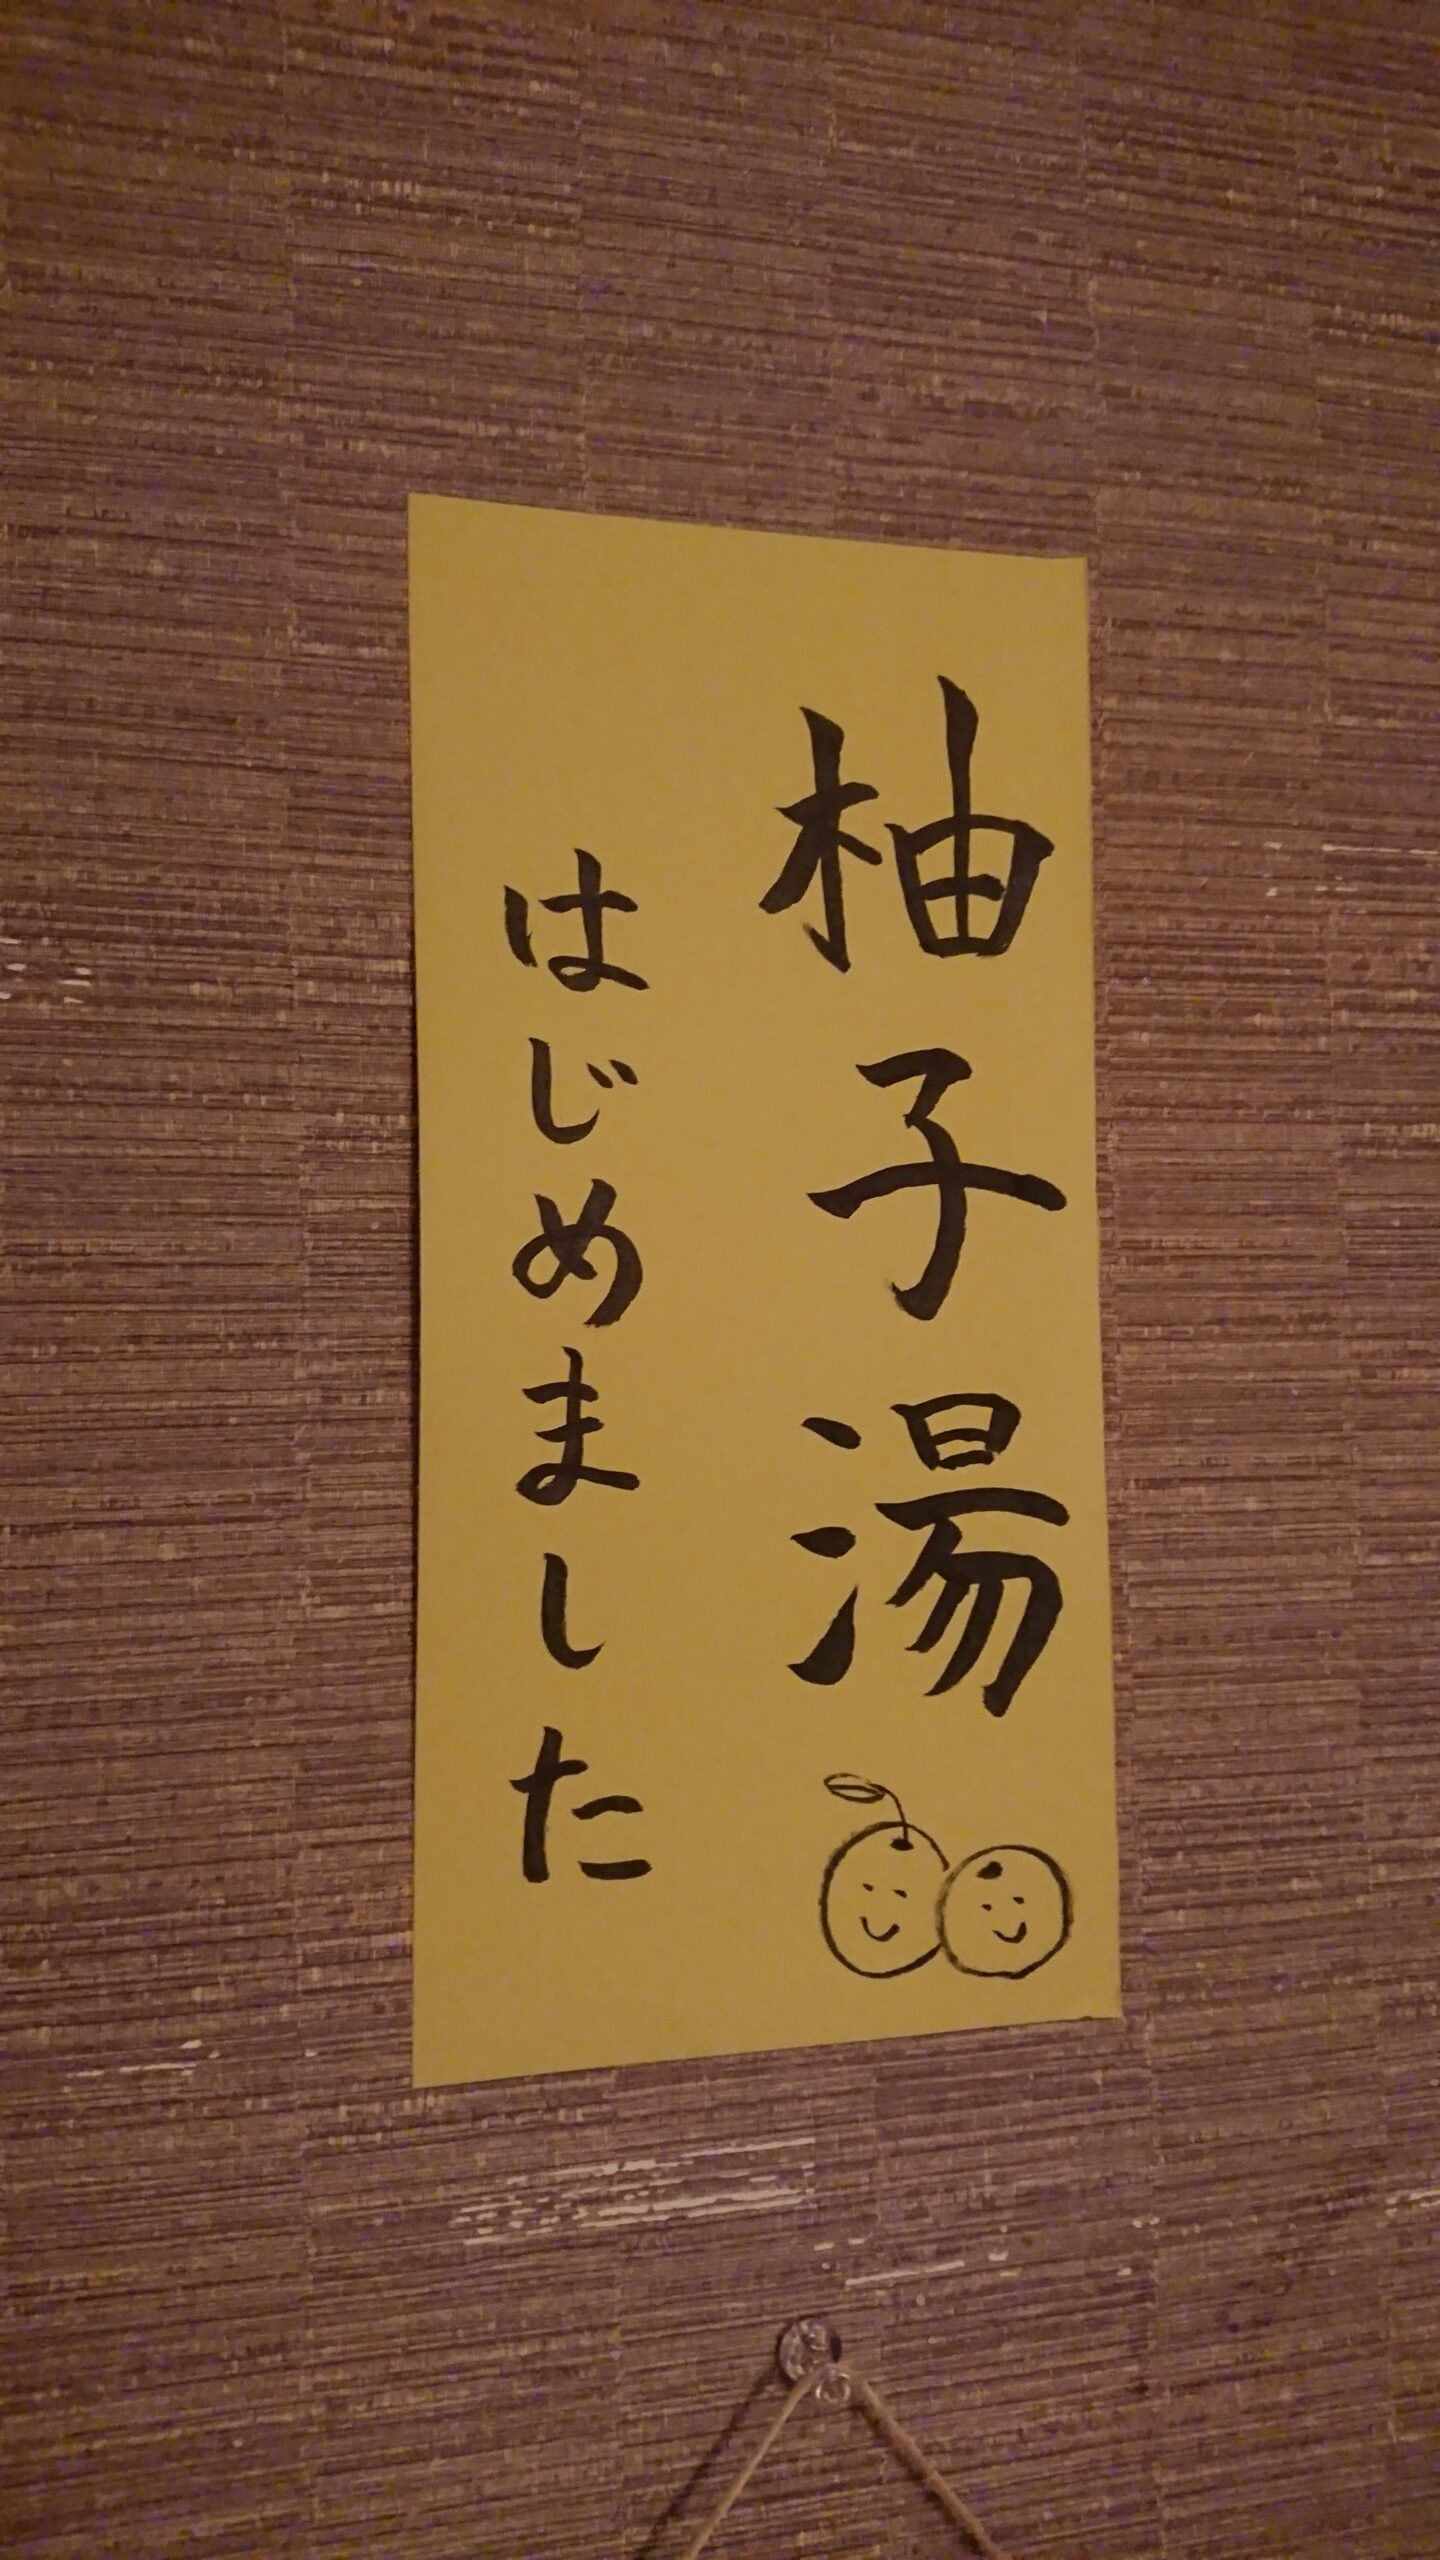 柚子湯
はじめました